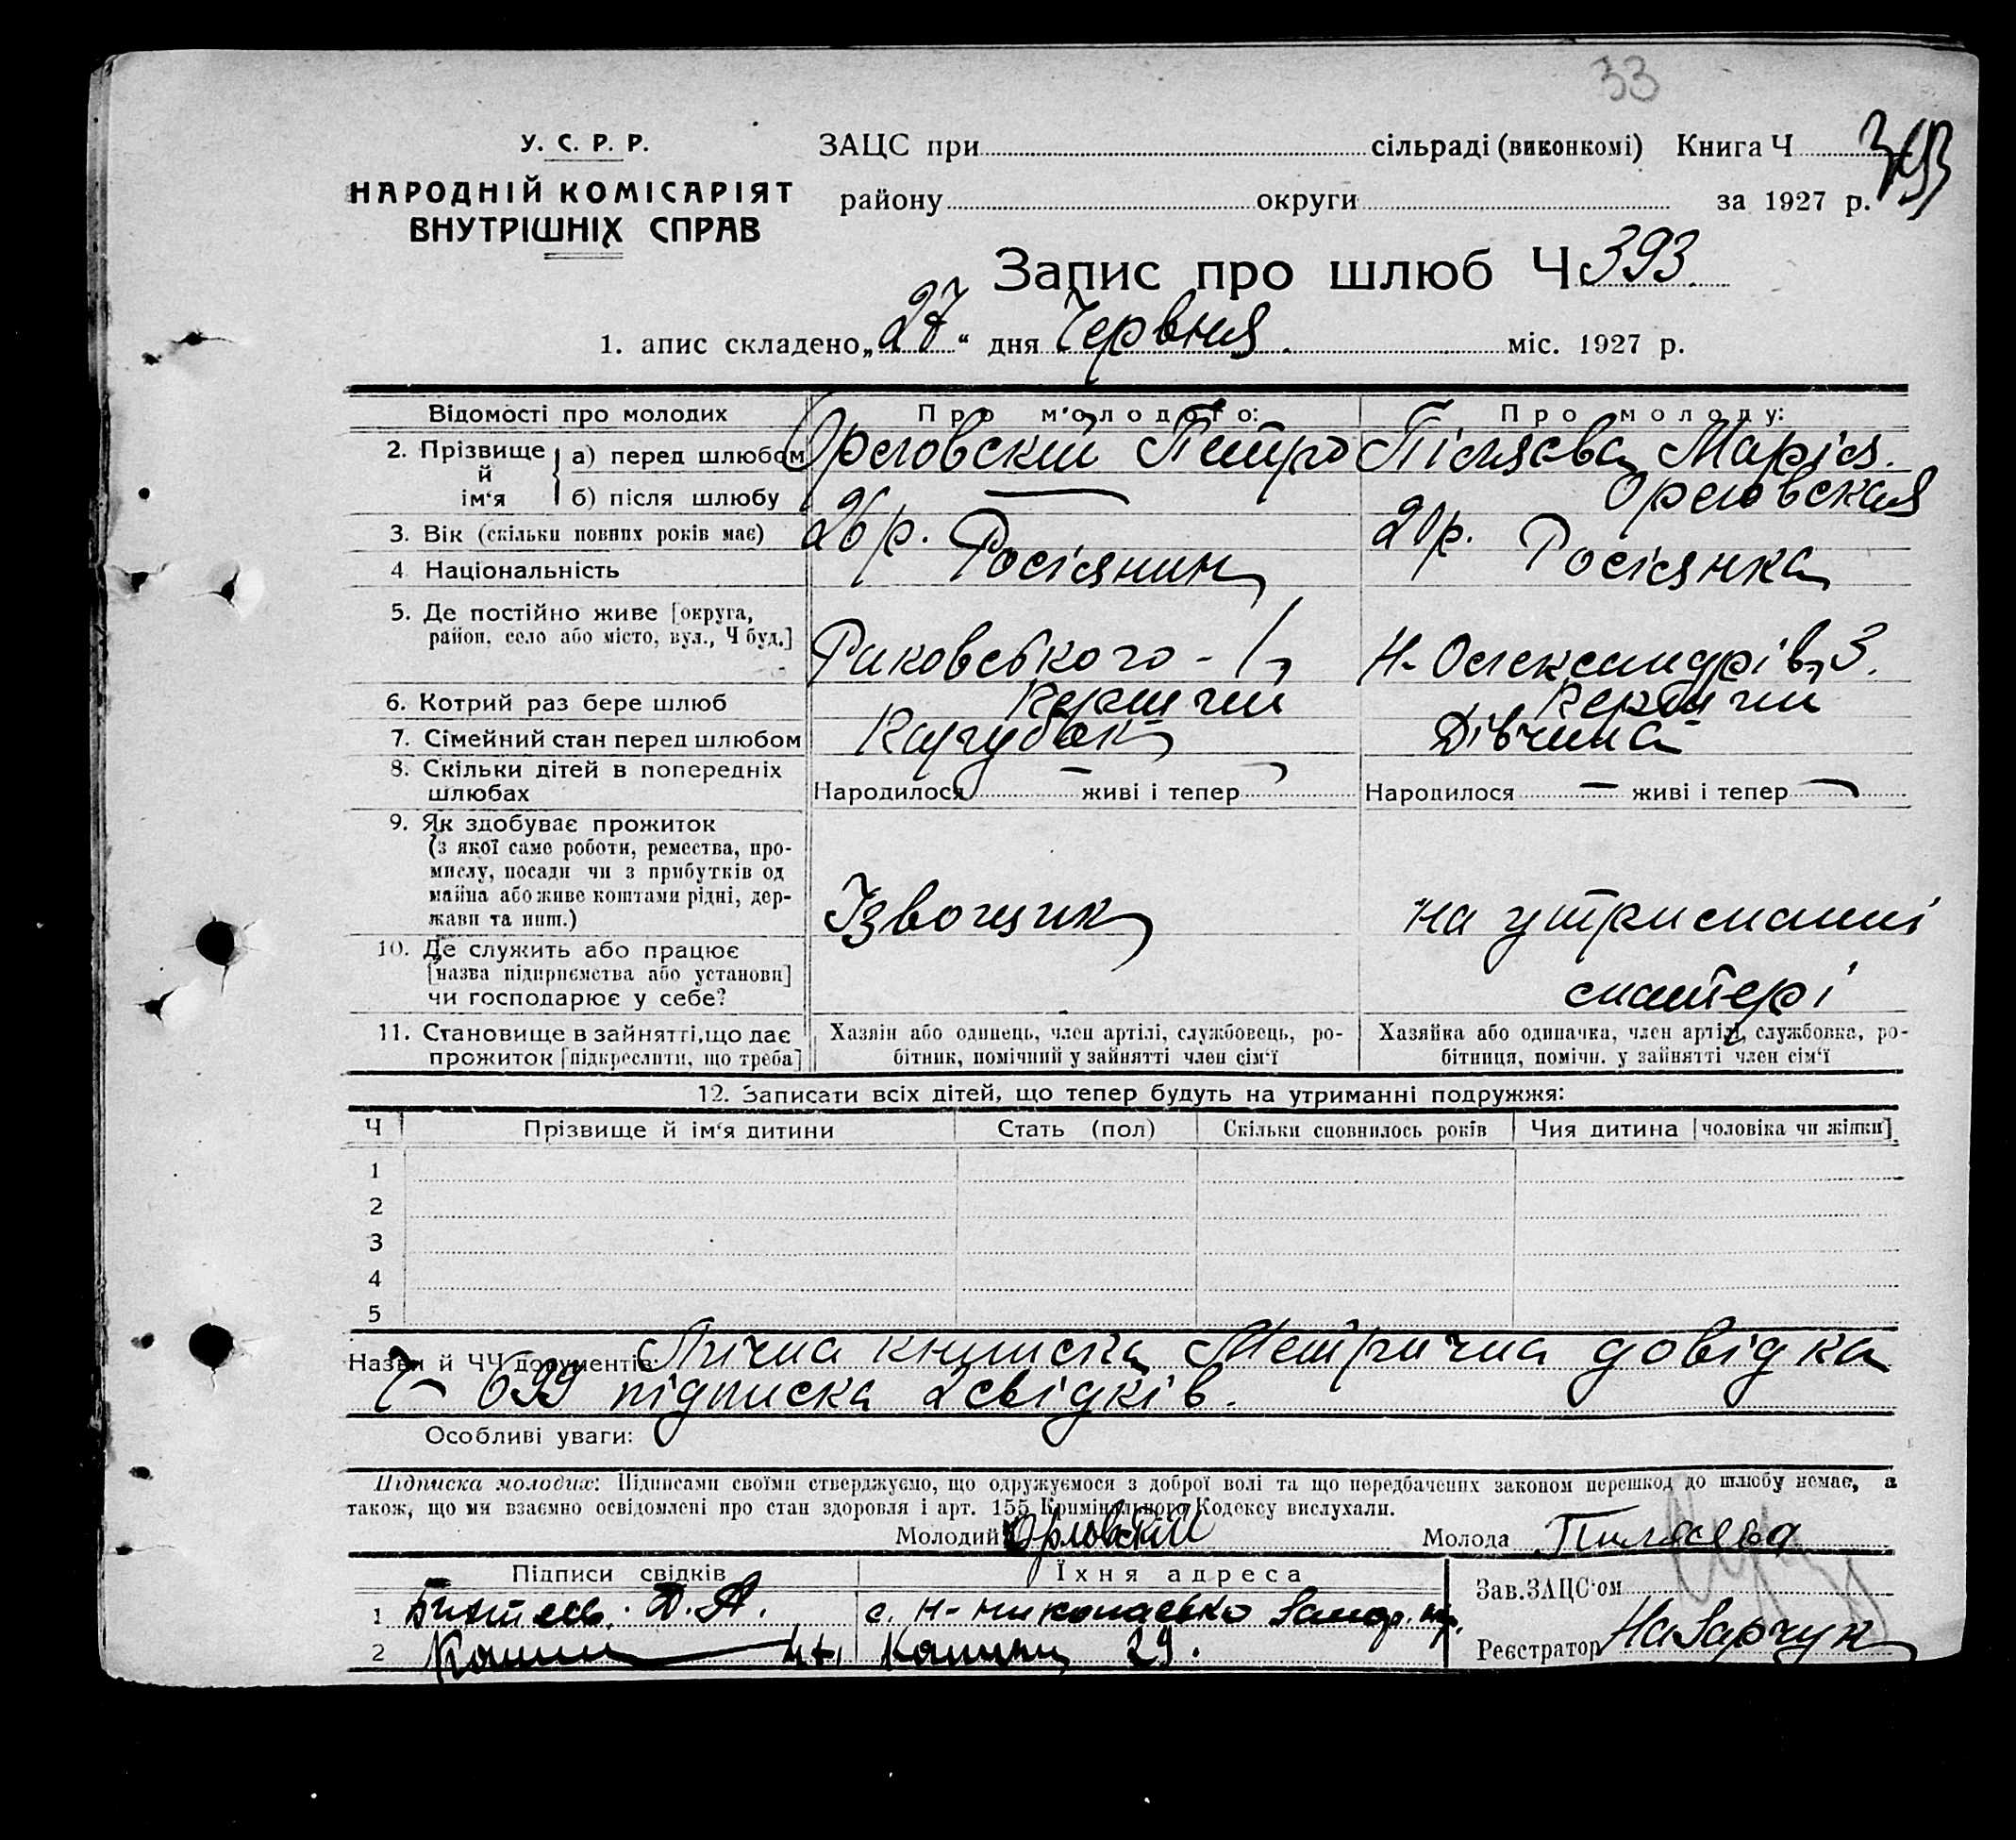 33
У. С. Р. Р.
НАРОДНІЙ КОМІСАРІЯТ
ВНУТРІШНІХ СПРАВ
ЗАЦС при сільраді (виконкомі) Книга Ч 393
району округи за 1927 р.
Запис про шлюб Ч 393
1. апис складено „27“ дня Червня міс. 1927 р.
Відомості про молодих Про м'олодого: Про молоду:
2. Прізвище й ім'я а) перед шлюбом Орловский Петро Піляєва Марія
б) після шлюбу — Орловская
3. Вік (скільки повних років має) 26 р. 20 р.
4 Національність Росіянин Росіянка
5. Де постійно живе [округа,
район, село або місто, вул., Ч буд.] Раковського - 1 Н- Олександрів, 3.
6. Котрий раз бере шлюб Перший Перший
7. Сімейний стан перед шлюбом Парубок Дівчина
8. Скільки дітей в попередніх
шлюбах Народилося — живі і тепер — Народилося — живі і тепер —
9. Як здобуває прожиток
(з якої саме роботи, ремества, про-
мислу, посади чи з прибутків од
майна або живе коштами рідні, дер-
жави та инш.) Ізвощик на утриманні
10. Де служить або працює
[назва підприємства або установи]
чи господарює у себе? матері
11. Становище в зайнятті, що дає
прожиток [підкреслити, що треба]
Хазяїн або одинець, член артілі, службовець, ро-
бітник, помічний у зайнятті член сім'ї
Хазяйка або одиначка, член артілі, службовка, ро-
бітниця, помічн. у зайнятті член сім'ї
12. Записати всіх дітей, що тепер будуть на утриманні подружжя:
Ч Прізвище й ім'я дитини Стать (пол) Скільки сповнилось років Чия дитина [чоловіка чи жінки]
1
2
3
4
5
Назви й ЧЧ документів: Лічна книжка Метрична довідка
Ч 699 підписка 2 свідків.
Особливі уваги:
Підписка молодих: Підписами своїми стверджуємо, що одружуємося з доброї волі та що передбачених законом перешкод до шлюбу немає, а
також, що ми взаємно освідомлені про стан здоровля і арт. 155 Кримінального Кодексу вислухали.
Молодий Орловский Молода Пиляева
Підписи свідків Їхня адреса
1 Д. А. с. Н-
2 29.
Зав. ЗАЦС'ом
Реєстратор Назарчук